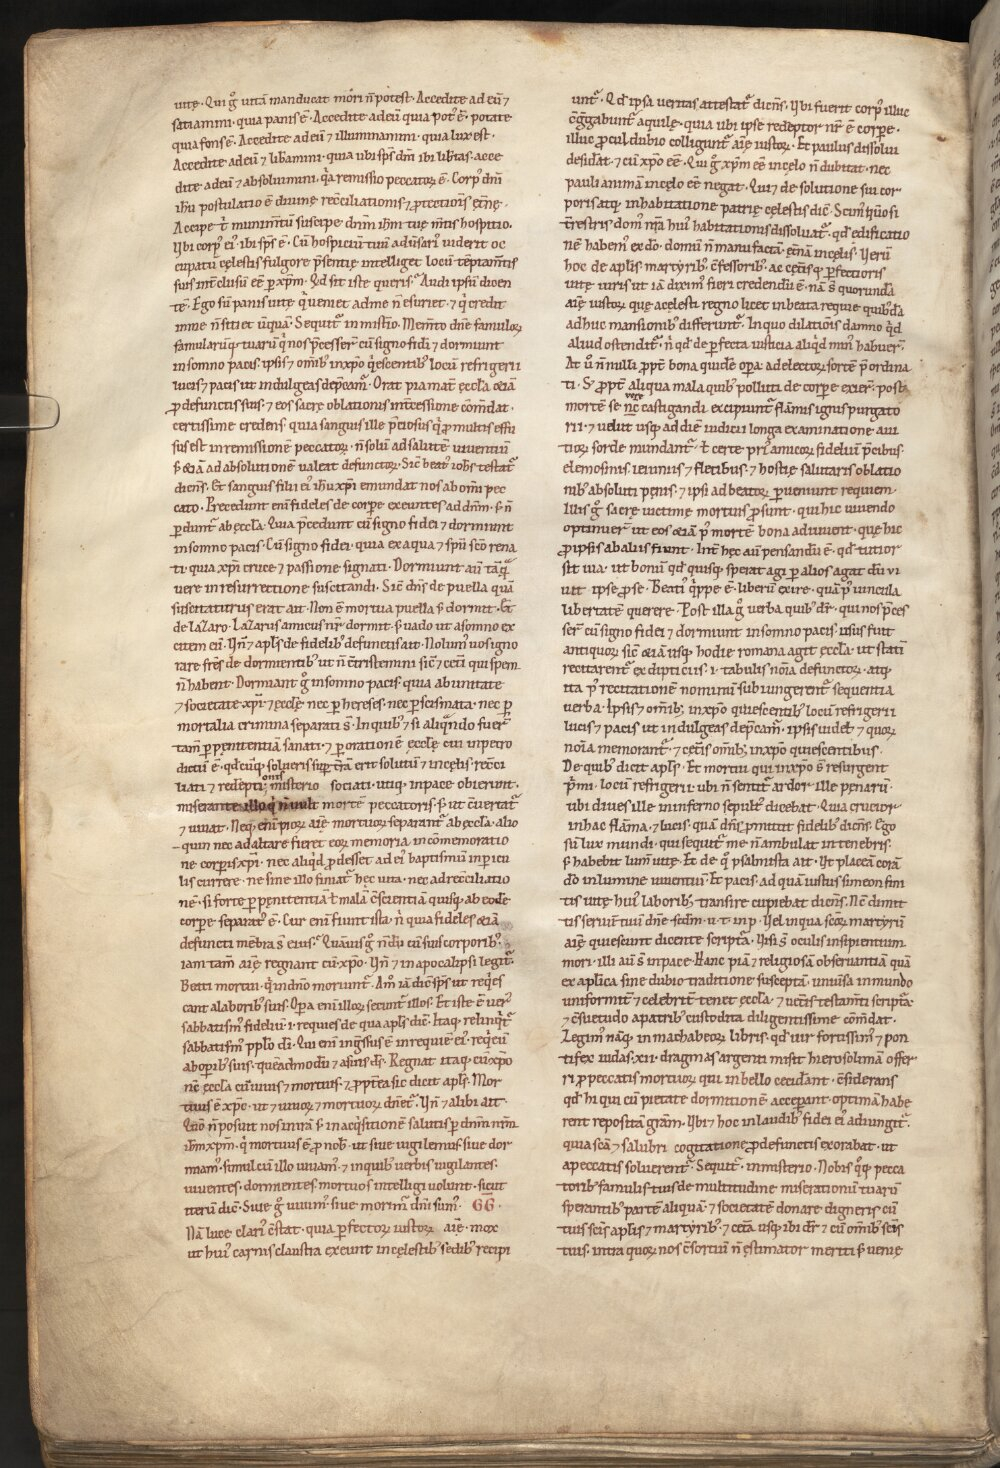 uitę. Qui g̊ uitā manducat mori n̄ potest. Accedite ad eū ⁊
satiamini. quia panis ē. Accedite ad eū quia pot᷒ ē. potate
quia fons ē. Accedite ad eū ⁊ illuminamini. quia lux est.
Accedite ad eū ⁊ liƀamini. quia ubi sps̄ dn̄i ibi liƀtas. acce
dite ad eū ⁊ absoluimini. q̇a remissio peccatoꝝ ē. Corp᷒ dn̄i
ih̄u postulatio ē diuinę recc̄iliationis ⁊ ꝓtectionis et̄nę.
Accipe
Ubi corp᷒ ei᷒ ibi sps̄ ē. Cū hospiciū tuū aduersari᷒ uiderit oc
cupatū cęlestis fulgore p̄sentię intelliget locū tēptam̄tis
suis int̄clusū eē ꝑ xp̄m. Qd̄ sit iste queris. Audi ipsū dicen
tē. Ego sū panis uitę q̇ uenit ad me n̄ esuriet. ⁊ q̇ credit
in me n̄ sitiet ūquā. Sequit᷑ in mist̄io. Mem̄to dn̄e famuloꝝ
famularūq; tuarū q̇ nos p̄cesser̄ cū signo fidei ⁊ dormiunt
in somno pacis. ipsis ⁊ om̄ib; in xp̄o q̇escentib; locū refrigerii
lucis ⁊ pacis ut indulgeas dep̄cam᷑. Orat pia mat̄ ęccl̄a &iā
ꝓ defunctis suis. ⁊ eos sacrę oblationis int̄cessione com̄dat.
certissime credens quia sanguis ille p̄ciosus q̇ ꝓ multis effu
sus est in remissionē peccatoꝝ. n̄ solū ad salutē uiuentiū
s; &iā ad absolutionē ualeat defunctoꝝ. Sic̄ beat᷒ ioh̄s testat᷑
dicens. Et sanguis filii ei᷒ ih̄u xp̄i emundat nos ab om̄i pec
cato. Precedunt enī fideles de corpe exeuntes ad dn̄m. s; n̄
ꝑdunt᷑ ab ęccl̄a. Quia p̄cedunt cū signo fidei ⁊ dormiunt
in somno pacis. Cū signo fidei. quia ex aqua ⁊ spū sc̄o rena
ti. quia xp̄i cruce ⁊ passione signati. Dormiunt
uere in resurrectione suscitandi. Sic̄ dn̄s de puella quā
suscitaturus erat ait. Non ē mortua puella s; dormit. Et
de lazaro. Lazarus amicus nr̄ dormit. s; uado ut a somno ex
citem eū. Un̄ ⁊ apl̄s de fidelib; defunctis ait. Nolum᷒ uos igno
rare frēs de dormientib; ut n̄ c̄tristemini sic̄ ⁊ cet̄i qui spem
n̄ habent. Dormiant g̊ in somno pacis. quia ab unitate
⁊ societate xp̄i ⁊ ęccl̄ę nec ꝑ hereses. nec ꝑ scismata. nec ꝑ
mortalia crimina separati s̄. In quib; ⁊ si aliq̇ndo fuer̄
tam̄ ꝑ penitentiā sanati. ⁊ ꝑ orationē ęccl̄ę cui in petro
dictū ē. qd̄cūq; solueris suꝑ t̄rā erit solutū ⁊ in cęlis recc̄i
liati ⁊ redēptionis misterio sociati. utiq; in pace obierunt.
miserante illo q̇ n̄ uult mortē peccatoris. s; ut c̄uertat᷑
⁊ uiuat. Neq; enī pioꝝ aīę mortuoꝝ separant᷑ ab ęccl̄a. alio
quin nec ad altare fieret eoꝝ memoria in cōmemoratio
ne corꝑis xp̄i. nec aliq̇d ꝓdesset ad ei᷒ baptismū in pͥicu
lis currere. ne sine illo finiat᷑ hęc uita. nec ad recc̄iliatio
nē. si forte ꝑ penitentiā ł malā c̄scientiā quisq; ab eodē
corpe separat᷒ ē. Cur enī fiunt ista. n̄ quia fideles &iā
defuncti mēbra s̄ eius. Quāuis g̊ n̄dū cū suis corporib;
iam tam̄ aīę regnant cū xp̄o. Un̄ ⁊ in apocalipsi legit᷑.
Beati mortui. q̇ in dn̄o moriunt᷑. Am̄ iā dic̄ sps̄ ut req̇es
cant a laborib; suis. Opa enī illoꝝ secunt᷑ illos. Et iste ē uer᷒
sabbatism᷒ fideliū .i. requies de qua apl̄s dic̄. Itaq; relinq̇t᷑
sabbatism᷒ pplo dī. Qui enī ing̊ssus ē in requiē ei᷒. req̇eū
ab opib; suis. quēadmodū ⁊ a suis ds̄. Regnat itaq; cū xp̄o
nc̄ ęccl̄a cū uiuis ⁊ mortuis. ⁊ ꝓpt̄ea sic dicit apl̄s. Mor
tuus ē xp̄c. ut ⁊ uiuoꝝ ⁊ mortuoꝝ dn̄et᷑. Un̄ ⁊ alibi ait.
Quō n̄ posuit nos in irā s; in acq̇sitionē salutis ꝑ dn̄m nr̄m
ih̄m xp̄m. q̇ mortuus ē ꝓ nob̄. ut siue uigilemus siue dor
miam᷒. simul cū illo uiuam᷒. ⁊ in quib; uerbis uigilantes.
uiuentes. dormientes. mortuos intelligi uolunt. sicut
iterū dic̄. Siue g̊ uiuim᷒ siue morim᷒ dn̄i sum᷒.
Nā luce clari᷒ c̄stat. quia ꝑfectoꝝ iustoꝝ aīę. mox
ut hui᷒ carnis claustra exeunt in cęlestib; sedib; recipi
unt᷑. Qd̄ ipsa ueritas attestat᷑ dicens. Ubi fuerit corp᷒ illuc
c̄g̊gabunt᷑ aquilę. quia ubi ipse redēptor nr̄ ē corpe.
illuc ꝓcul dubio colligunt᷑ aīę iustoꝝ. Et paulus dissolui
desiďat. ⁊ cū xp̄o eē. Qui g̊ xp̄m eē in cęlo n̄ dubitat. nec
pauli animā in cęlo eē negat. Qui ⁊ de solutione sui cor
poris atq; inhabitatione patrię cęlestis dic̄. Scim᷒ qūo si
t̄restris dom᷒ nr̄a hui᷒ habitationis dissoluat᷑. qd̄ edificatio
nē habem᷒ ex do. domū n̄ manufactā. et̄nā in cęlis. Uerū
hoc de apl̄is. martyrib; c̄fessorib;. ac cet̄isq; ꝑfectioris
uitę uiris ut iā dixim᷒ fieri credendū ē. nā s̄ quorundā
aīę iustoꝝ quę a celesti regno licet in beata requie quib;dā
adhuc mansionib; differunt᷑. In quo dilationis damno q̇d
aliud ostendit᷑. n̄ qd̄ de ꝑfecta iusticia aliq̇d min᷒ habuer̄.
At ů n̄nulli ꝓpt̄ bona quidē opa. ad electoꝝ sortē p̄ordina
ti. S; ꝓpt̄ aliqua mala quib; polluti de corpe exier̄. post
mortē seuere castigandi excipiunt᷑ flāmis ignis purgato
rii. ⁊ uelut usq; ad diē iudicii longa examinatione a ui
tioꝝ sorde mundant᷑. ł certe pri᷒ amicoꝝ fideliū p̄cibus.
elemosinis. ieiuniis ⁊ fletibus. ⁊ hostię salutaris oblatio
nib; absoluti penis. ⁊ ipsi ad beatoꝝ ꝑueniunt requiem.
Illis g̊ sacrę uictimę mortuis ꝓsunt. qui hic uiuendo
optinuer̄ ut eos &iā p᷒ mortē bona adiuuent. quę hic
ꝓ ipsis ab aliis fiunt. Int̄ hęc aū pensandū ē. qd̄ tutior
sit uia. ut bonū qd̄ quisq; sperat agi ꝑ alios agat dū ui
uit ipse ꝓ se. Beati᷒ q̇ppe ē. liberū exire. quā p᷒ uincula
libertatē querere. Post illa g̊ uerba quib; dr̄. qui nos p̄ces
ser̄ cū signo fidei ⁊ dormiunt in somno pacis. usus fuit
antiquoꝝ sic̄ &iā usq; hodie romana agit ęccl̄a. ut statī
recitarent᷑ ex dipticiis .i. tabulis noīa defunctoꝝ. atq;
ita p᷒ recitationē nominū subiungerent᷑ sequentia
uerba. Ipsis ⁊ om̄ib; in xp̄o quiescentib; locū refrigerii
lucis ⁊ pacis ut indulgeas dep̄cam᷑. ipsis uidet ⁊ quoꝝ
noīa memorant᷑. ⁊ cet̄is om̄ib; in xp̄o quiescentibus.
De quib; dicit apl̄s. Et mortui qui in xp̄o s̄ resurgent
p̄mi. locū refrigerii. ubi n̄ sentit᷑ ardor ille penarū.
ubi diues ille in inferno sepult᷒ dicebat. Quia crucior
in hac flāma. ⁊ lucis. quā dn̄s ꝓmittit fidelib; dicens. Ego
sū lux mundi. qui sequit᷑ me n̄ ambulat in tenebris.
s; habebit lum̄ uitę. Et de q̇ psalmista ait. Ut placeā corā
dō in lumine uiuentiū. Et pacis. ad quā iustus simeon fini
tis uitę hui᷒ laborib; transire cupiebat dicens. Nc̄ dimit
tis seruū tuū dn̄e. scdm̄. u. t. in p. Uel in qua sc̄oꝝ martyrū
aīę quiescunt dicente scriptͣa. Uisi s̄ oculis insipientium
mori. illi aū s̄ in pace. Hanc piā ⁊ religiosā obseruantiā quā
ex apl̄ica sine dubio traditione susceptā. uniuͥsa in mundo
uniformit̄ ⁊ celebrit̄ tenet ęccl̄a. ⁊ uet̄is testam̄ti scriptͣa.
⁊ c̄suetudo a patrib; custodita diligentissime com̄dat.
Legim᷒ nāq; in machabeoꝝ libris. qd̄ uir fortissim᷒ ⁊ pon
tifex iudas .xii. dragmas argenti misit hierosolimā offer
ri ꝓ peccatis mortuoꝝ qui in bello cecidͥant. c̄siderans
qd̄ hi qui cū pietate dormitionē acceperant. optimā habe
rent repositā grām. Ubi ⁊ hoc in laudib; fidei ei᷒ adiungit᷑.
quia sc̄a ⁊ salubri cogitatione ꝓ defunctis exorabat. ut
a peccatis soluerent᷑. Sequit᷑ in misterio. Nobis q̊q; pecca
torib; famulis tuis de multitudine miserationū tuarū
sperantib; partē aliquā ⁊ societatē donare digneris cū
tuis sc̄is apl̄is ⁊ martyrib; ⁊ cet̄a. usq; ibi dr̄ ⁊ cū om̄ib; sc̄is
tuis. intra quoꝝ nos c̄sortiū n̄ ęstimator meriti s; uenię